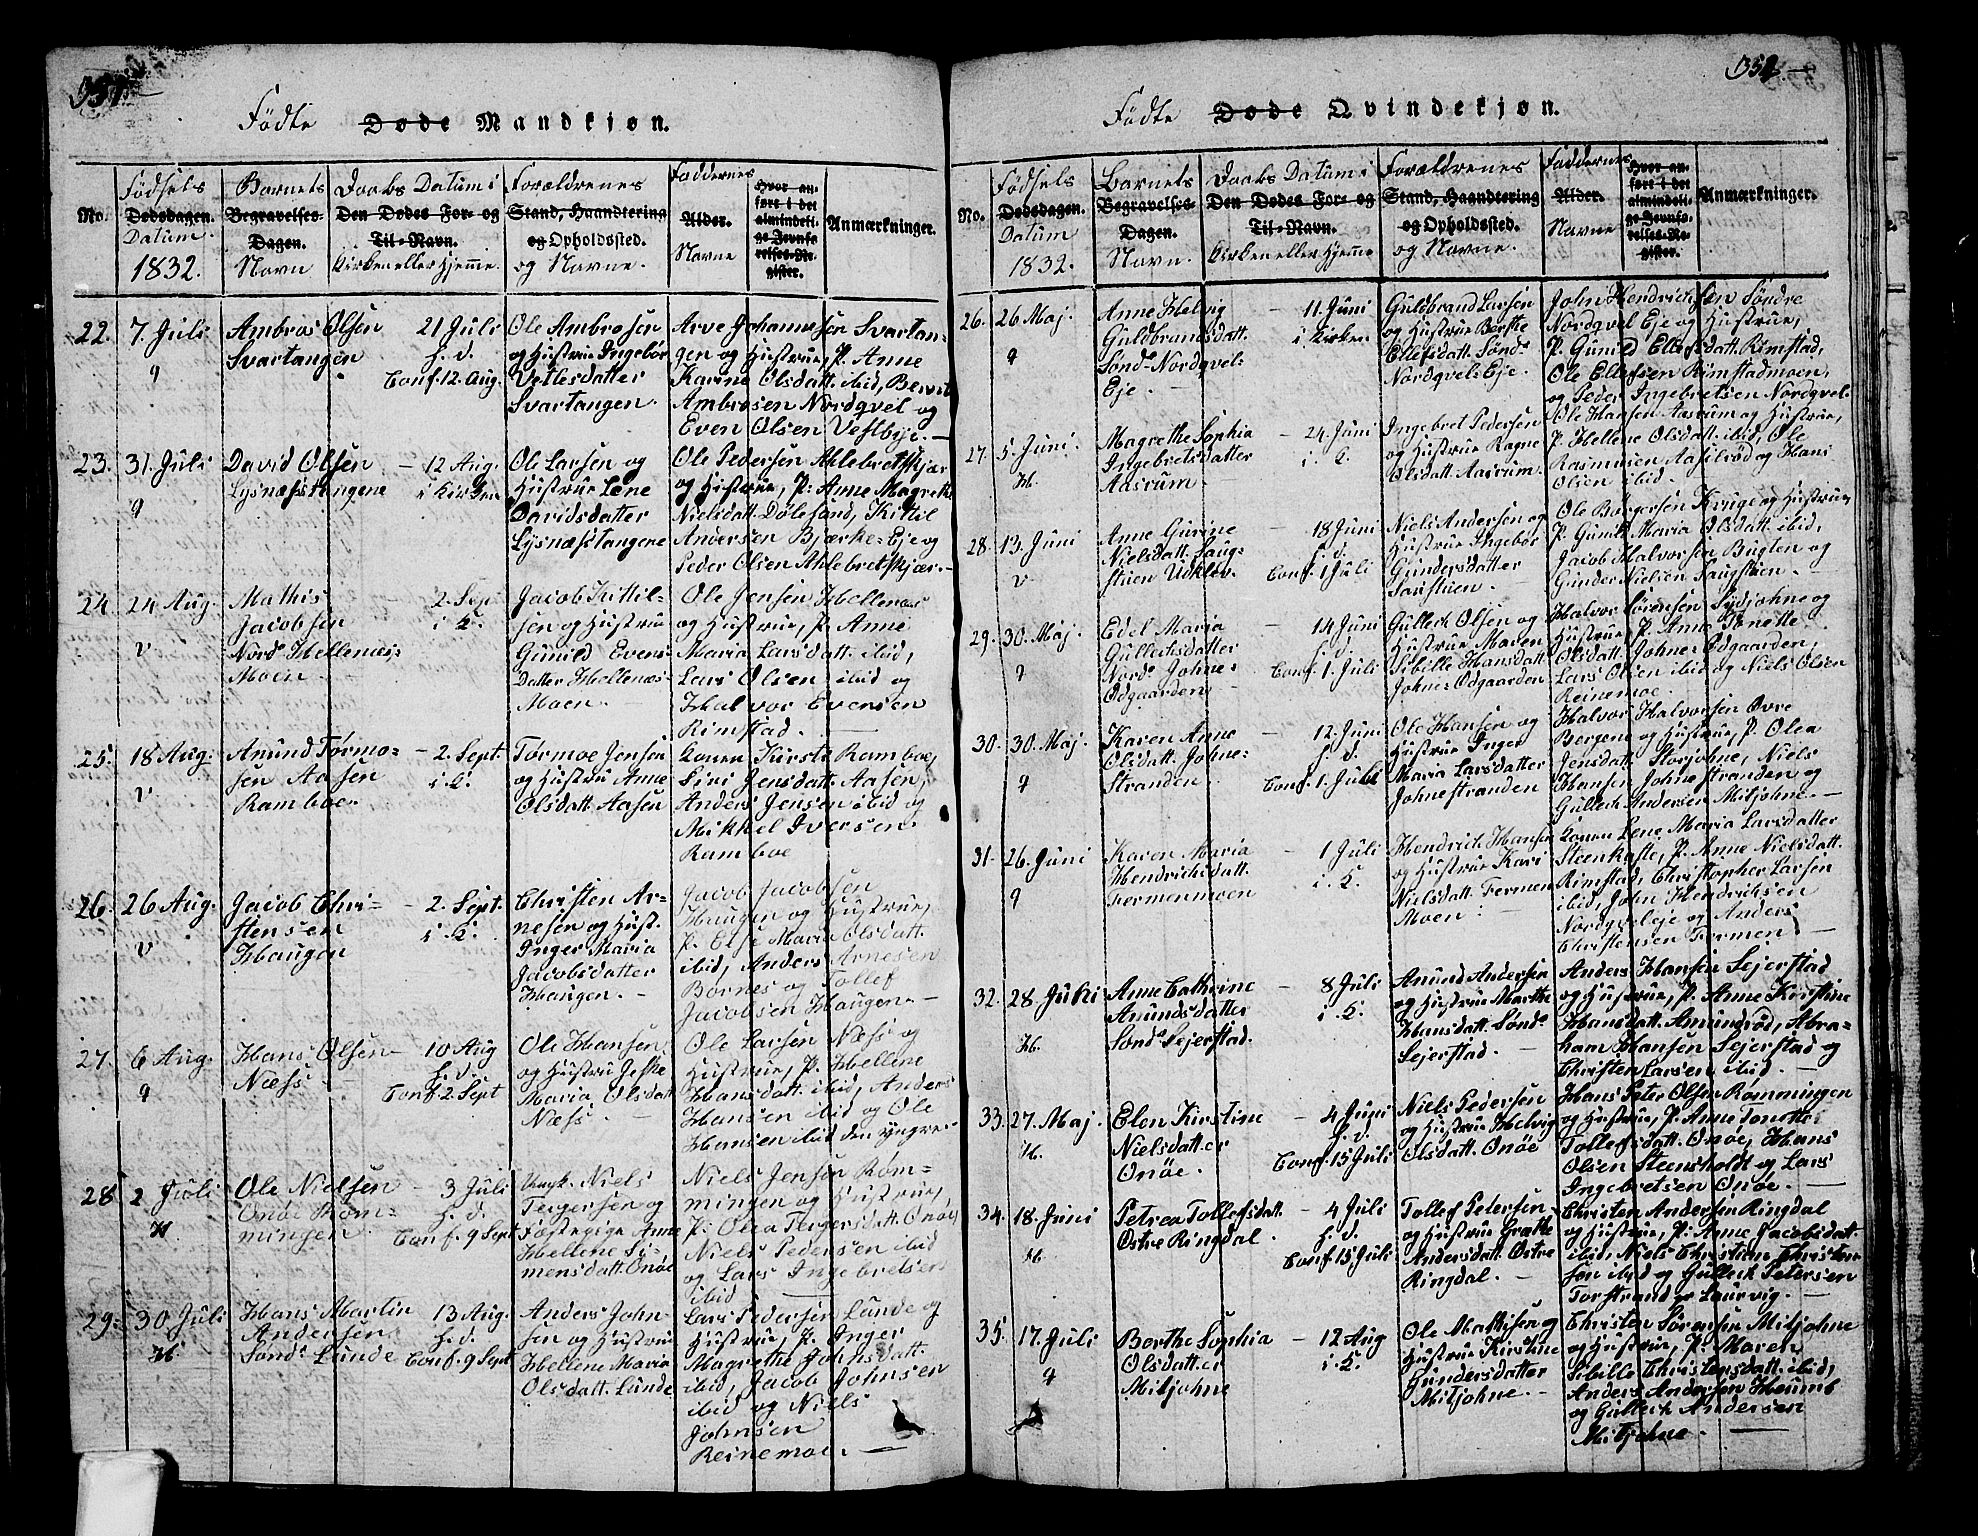 351.
Födte Døde Mandkjøn.
No.
Födsels
Dødsdagen.
Datum
1832.
Barnets
Begravelses-
Dagen.
Navn
Daabs Datum i
Den Dødes For- og
Til-Navn.
Kirken eller Hjemme.
Forældrenes
Stand, Haandtering
og Opholdssted.
og Navne.
Faddernes
Alder.
Navne
Hvor an-
ført i det
almindeli-
ge Jevnfø-
relses-Re-
gister.
Anmærkninger.
22.
7. Juli
q
Ambros Olsen
Svartangen
21 Juli
h. d.
Conf. 12. Aug.
Ole Ambrosen
og Hustrue Ingebör
Vetlesdatter
Svartangen.
Arve Johannesen Svartan-
gen og Hustrue, P. Anne
Karine Olsdatt. ibid, Bervit
Ambrosen Nordqvel og
Even Olsen Vestbye. —
23.
31. Juli
q
David Olsen
Lysnæsstangene
— 12 Aug.
i Kirken
Ole Larsen og
Hustrue Lene
Davidsdatter
Lysnæsstangene
Ole Pedersen Ahlebretskjær
og Hustrue, P. Anne Magrethe
Nielsdatt. Dölesand, Kittil
Andersen Bjærke-Eje og
Peder Olsen Ahlebretskjær. —
24.
24 Aug.
v
Mathis
Jacobsen
Nord. Hellenæs-
Moen. —
2. Sept
i K.
Jacob Kittil-
sen og Hustrue
Gunild Evens-
datter Hellenæs-
Moen. —
Ole Jensen Hellenæs
og Hustrue, P. Anne
Maria Larsdatt. ibid,
Lars Olsen ibid og
Halvor Evensen
Rimstad. —
25.
18 Aug.
v
Anund Tormo-
sen Aasen
Ramboe.
— 2. Sept.
i K.
Tormoe Jensen
og Hustrue Anne
Olsdatt. Aasen
Konen Kirsti Ramboe,
Siri Jensdatt. Aasen,
Anders Jensen ibid og
Mikkel Iversen
Ramboe
26.
26 Aug.
v
Jacob Chri-
stensen
Haugen
— 2. Sept.
i K.
Christen Ar-
nesen og Hust.
Inger Maria
Jacobsdatter
Haugen. —
Jacob Jacobsen
Haugen og Hustrue,
P. Else Maria Olsdatt.
ibid, Anders Arnesen
Bornes og Tollef
Jacobsen Haugen. —
27.
6 Aug.
q
Hans Olsen
Næss. —
10 Aug
h. d.
Conf. 2 Sept
Ole Hansen
og Hustrue Jeske
Maria Olsdatt
Næss. —
Ole Larsen Næss og
Hustrue, P. Hellene
Hansdatt. ibid, Anders
Hansen ibid og Ole
Hansen ibid den yngre. —
28
2 Juli
H.
Ole Nielsen
Onöe Röm-
mingen
— 3 Juli
h. d.
Conf. 9 Sept
Ungk. Niels
Tergersen og
Fæstepige Anne
Hellene Si-
mensdatt. Onöe
Niels Jensen Röm-
mingen og Hustrue,
P. Olea Tergersdatt. Onöe,
Niels Pedersen ibid
og Lars Ingebretsen
ibid
29.
30 Juli
H
Hans Martin
Andersen
Sönd. Lunde
13 Aug.
h. d.
Conf. 9 Sept
Anders John-
sen og Hustrue
Hellene Maria
Olsdatt. Lunde
Lars Pedersen Lunde og
Hustrue, P. Inger
Magrethe Johnsdatt.
ibid, Jacob Johnsen
ibid og Niels
Johnsen
Reinemoe. —
352.
Födte Døde Qvindekjøn.
No.
Födsels
Dødsdagen.
Datum
1832.
Barnets
Begravelses-
Dagen.
Navn.
Daabs Datum i
Den Dødes For- og
Til-Navn.
Kirken eller Hjemme
Forældrenes
Stand, Haandtering
og Opholdssted.
og Navne.
Faddernes
Alder.
Navne
Hvor an-
ført i det
almindeli-
ge Jevnfø-
relses-Re-
gister.
Anmarkninger.
26.
26 Maj.
q
Anne Helvig
Guldbrandsdatt.
Sönd. Nordqvel-
Eje.
— 11. Juni
i Kirken
Guldbrand Larsen
og Hustrue Berthe
Ellefsdatt. Sönd.
Nordqvels Eje.
John Hendrichsen Söndre
Nordqvel Eje og Hustrue,
P. Gunild Ellefsdatt. Rimstad,
Ole Ellefsen Rimstadmoen,
og Peder Ingebretsen Nordqvel.
27.
5. Juni.
H.
Magrethe Sophia
Ingebretsdatter
Aasrum.
— 24. Juni
i. K.
Ingebret Pedersen
og Hustrue Ragne
Olsdatt Aasrum.
Ole Hansen Aasrum og Hustrue,
P. Hellene Olsdatt. ibid, Ole
Rasmusen Aasilröd og Hans
Olsen ibid.
28.
13. Juni
v
Anne Gurine
Nielsdatt. Saug-
stuen Udklev.
— 18 Juni
h. d.
Conf. 1 Juli
Niels Andersen og
Hustrue Ingebör
Gundersdatter
Saustuen. —
Ole Borgersen Kruge og Hustrue,
P. Gunil Maria Olsdatt. ibid,
Jacob Halvorsen Bugten og
Gunder Nielsen Saugstuen. —
29.
30. Maj.
q
Edel Maria
Gulleksdatter
Nord. Johne-
Ödgaarden
— 14 Juni
h. d.
Conf. 1. Juli
Gullek Olsen og
Hustrue Maren
Sibille Hansdatt.
Johne-Ödgaarden
Halvor Sörensen Sydjohne og
Hustrue, P. Anne Tonette
Olsdatt. Johne-Ödgaarden,
Lars Olsen ibid og Niels Olsen
Reinemoe. —
30.
30. Maj.
q
Karen Anne
Olsdatt. Johne-
Stranden
— 12. Juni
h. d.
Conf. 1. Juli
Ole Hansen og
Hustrue Inger
Maria Larsdatter
Johnestranden
Halvor Halvorsen Övre
Bergene og Hustrue, P. Olea
Jensdatt. Storjohne, Niels
Hansen Johnestranden og
Gullek Andersen Mitjohne. —
31.
26. Juni
q
Karen Maria
Hendrichsdatt.
Fermenmoen
— 1 Juli
i. K.
Hendrich Hansen
og Hustrue Kari
Nielsdatt. Fermen
Moen
Konen Lene Maria Larsdatter
Steenkaste, P. Anne Nielsdatt.
Rimstad, Christopher Larsen
ibid, John Hendrichsen
Nordqvelleje og Anders
Christensen Fermen
32.
28 Juni
H.
Anne Cathrine
Anundsdatter
Sönd. Sejerstad.
— 8 Juli
i. K.
Anund Andersen
og Hustrue Marthe
Hansdatt. Sönd.
Sejerstad. —
Anders Hansen Sejerstad
og Hustrue, P. Anne Kristine
Hansdatt. Amundröd, Abra-
ham Hansen Sejerstad og
Christen Larsen ibid. —
33.
27. Maj.
H.
Elen Kirstine
Nielsdatter
Onöe.
— 4 Juni
h. d.
Conf. 15 Juli
Niels Pedersen
og Hustrue Helvig
Olsdatt. Onöe
Hans Peter Olsen Rømmingen
og Hustrue, P. Anne Tonette
Tollefsdatt. Onöe, Hans
Olsen Steensholdt og Lars
Ingebretsen Onöe. —
34.
18. Juni
H
Petrea Tollefsdatt.
Östre Ringdal.
— 4 Juli
h. d.
Conf 15 Juli
Tollef Petersen
og Hustrue Grethe
Andersdatt. Östre
Ringdal. —
Christen Andersen Ringdal
og Hustrue, P. Anne Jacobsdatt
ibid, Niels Christian Christen-
sen ibid og Gullek Petersen
Torstrand v Laurvig. —
35.
17. Juli
q
Berthe Sophia
Olsdatter
Mitjohne
— 12 Aug
i. K.
Ole Mathisen og
Hustrue Kirstine
Gundersdatter
Mitjohne. —
Christen Sörensen Mitjohne
og Hustrue, P. Maren
Sibille Christensdatt. ibid,
Anders Andersen Heumb
og Gullek Andersen
Mitjohne. —